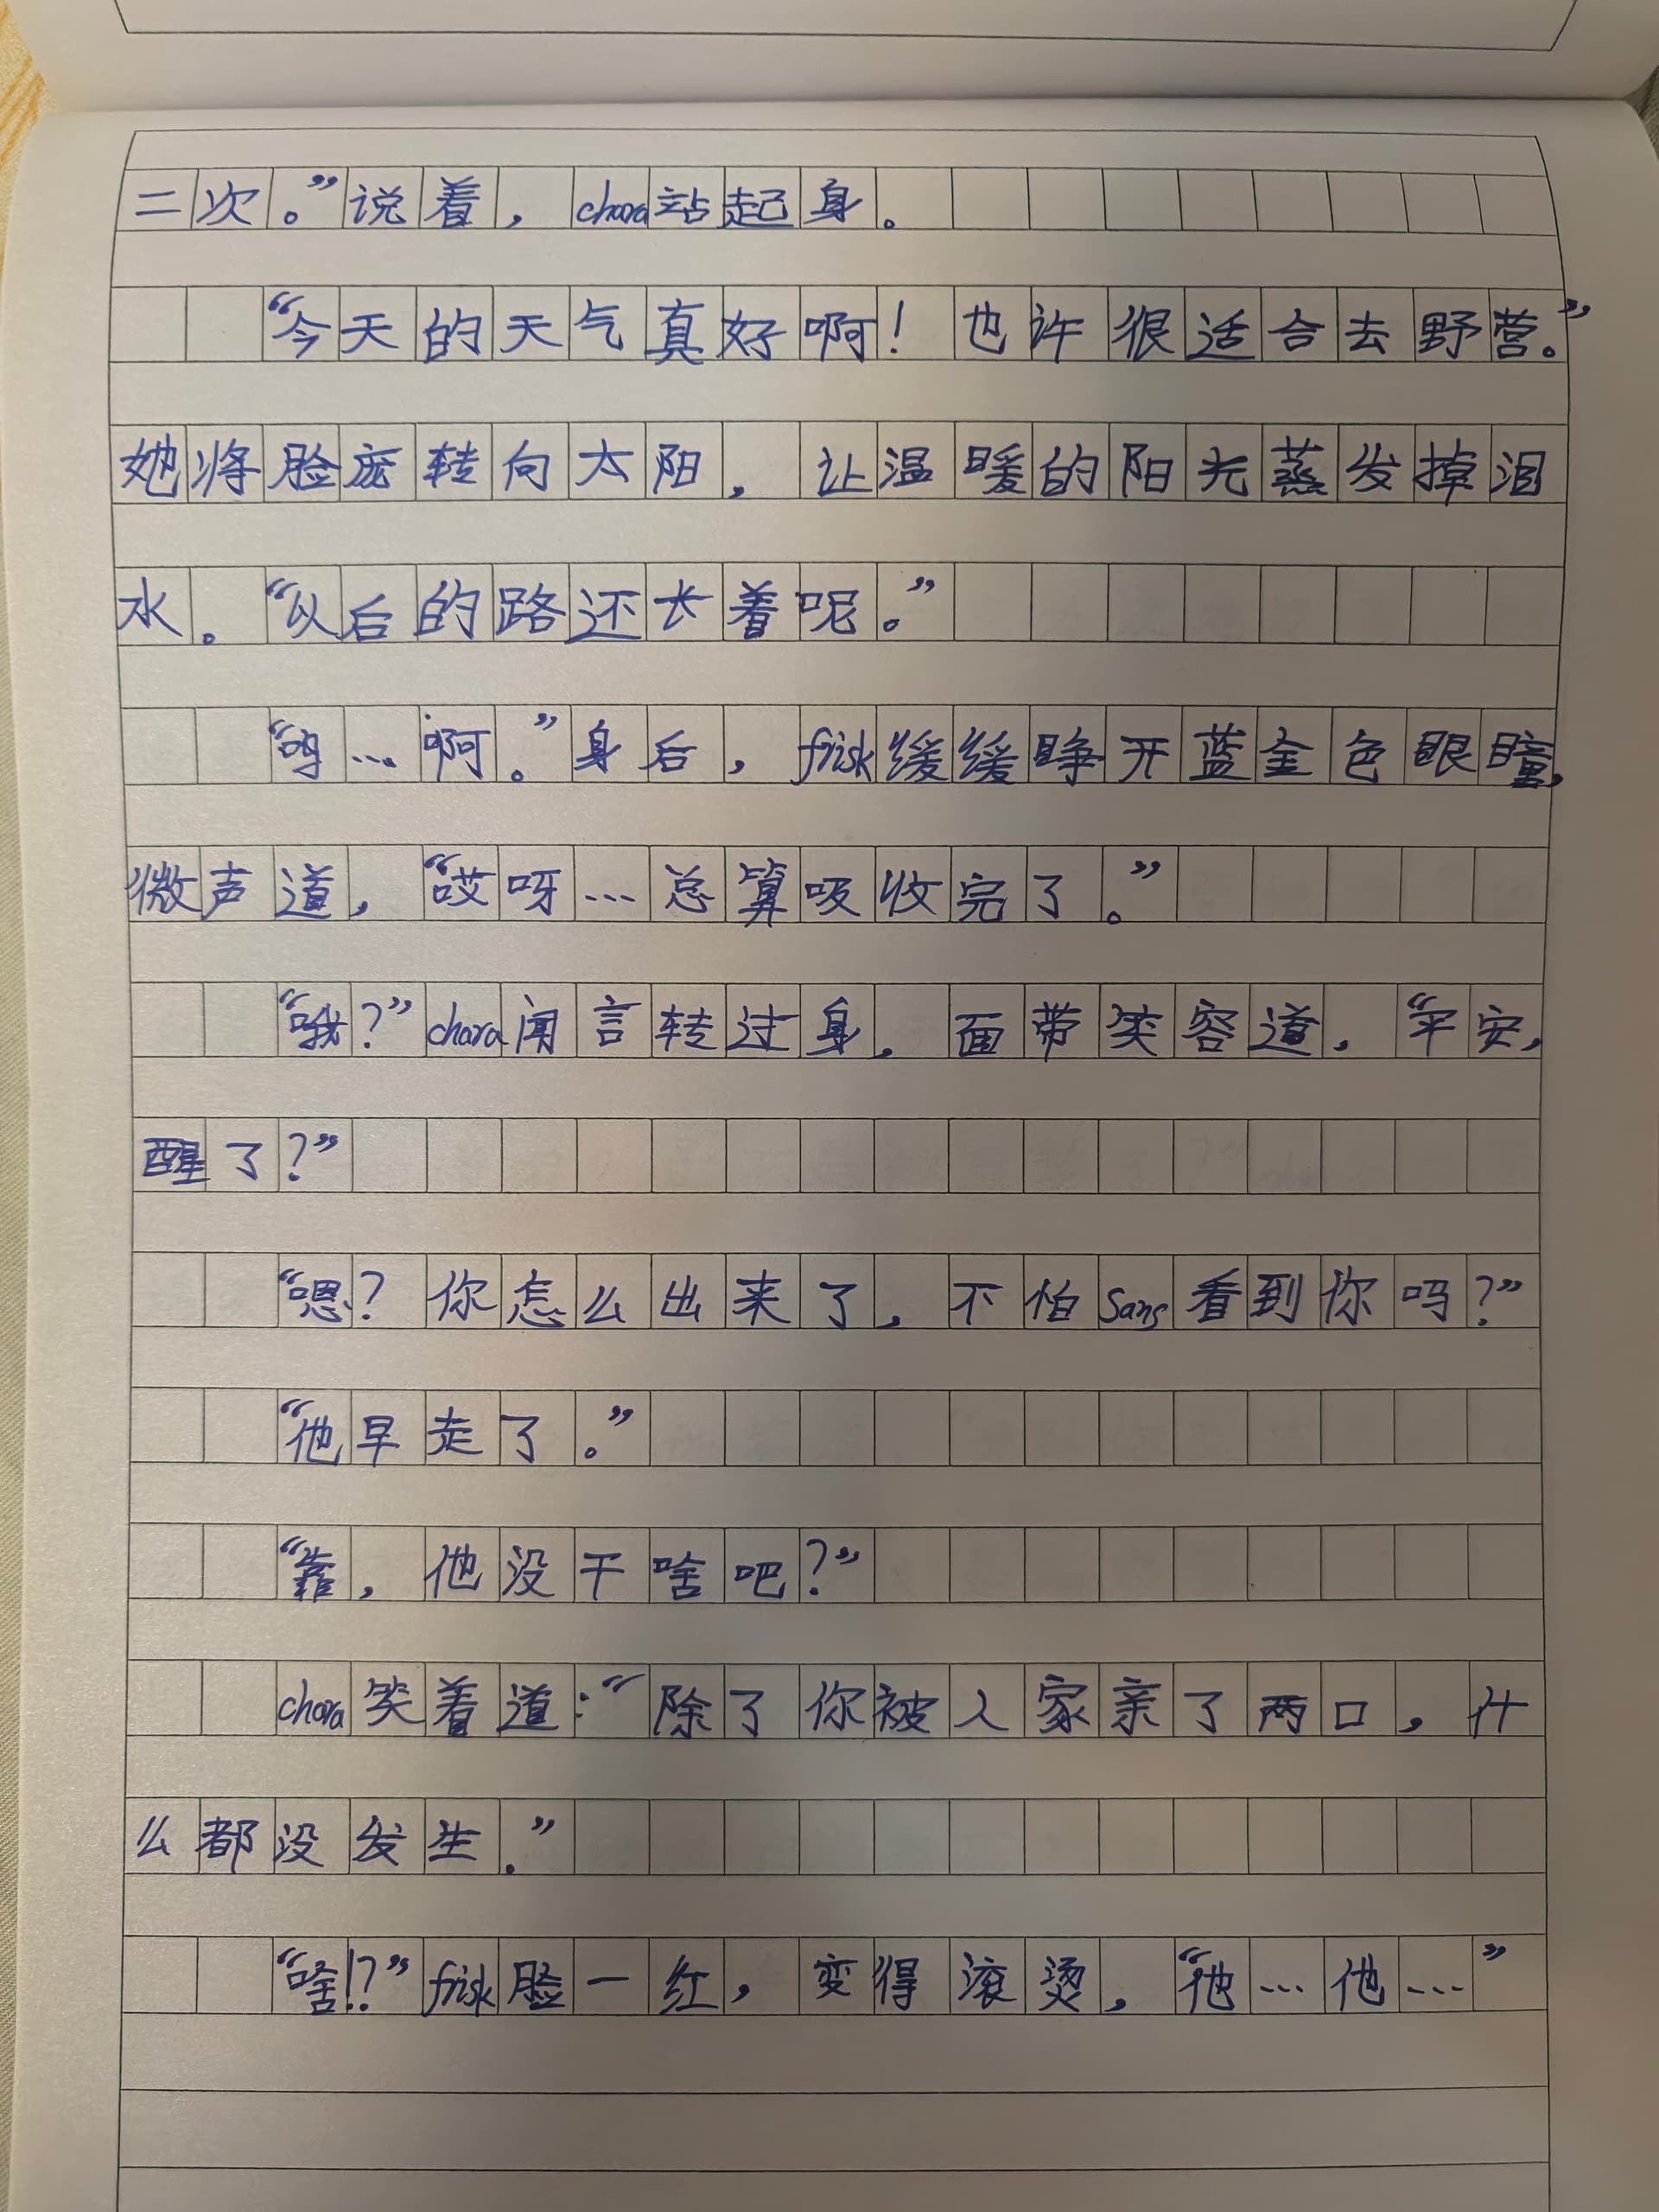 二次。”说着，chara站起身。
“今天的天气真好啊！也许很适合去野营。”
她将脸庞转向太阳，让温暖的阳光蒸发掉泪
水。“以后的路还长着呢。”
“呜…啊。”身后，frisk缓缓睁开蓝金色眼瞳，
微声道，“哎呀…总算吸收完了。”
“哦？”chara闻言转过身，面带笑容道，“平安，
醒了？”
“嗯？你怎么出来了，不怕Sans看到你吗？”
“他早走了。”
“靠，他没干啥吧？”
chara笑着道：“除了你被人家亲了两口，什
么都没发生.”
“啥！？”frisk脸一红，变得滚烫，“他…他…”